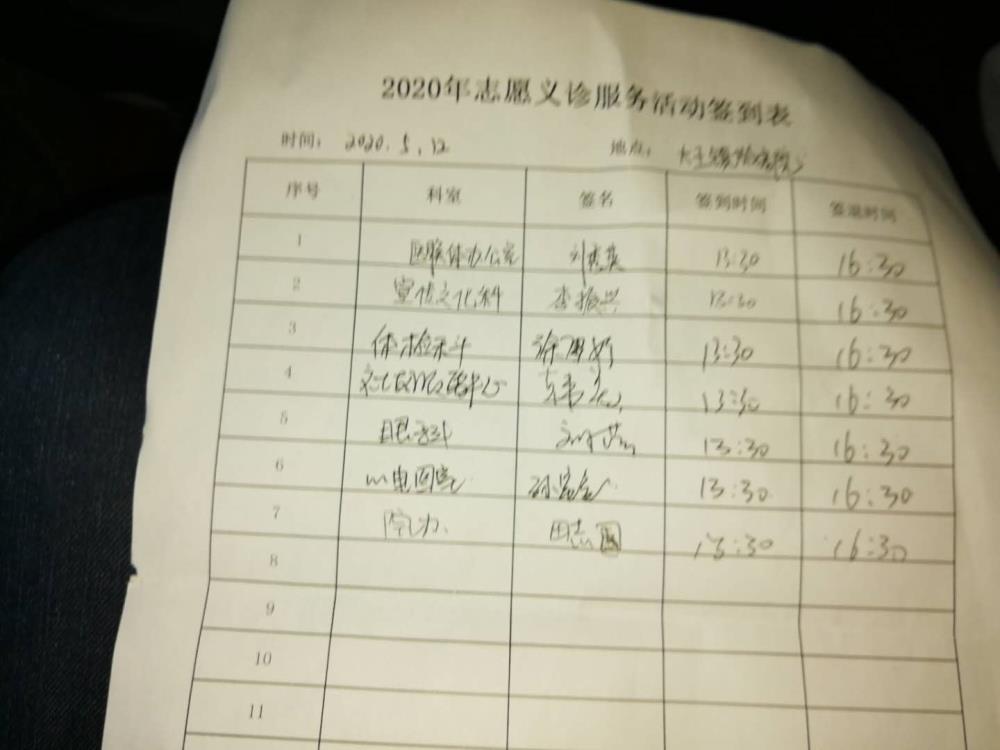 2020年志愿义诊服务活动签到表
时间： 2020.5.12 地点：
序号 科室 签名 签到时间 签退时间
1 医联体办公室 刘 英 13:30 16:30
2 宣传文化科 李振兴 13:30 16:30
3 体检科 徐 13:30 16:30
4 13:30 16:30
5 眼科 刘 13:30 16:30
6 心电图室 孙 13:30 16:30
7 院办 田志国 13:30 16:30
8
9
10
11